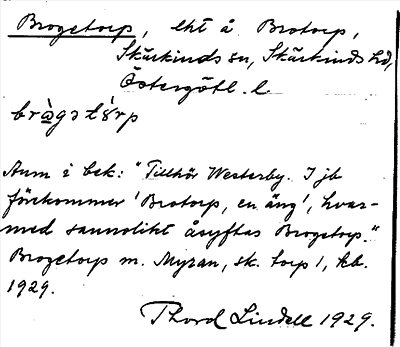 Brogetorp, lht å Brotorp,
Skärkinds sn, Skärkinds hd,
Östergötl. l
Anm i bek: "Tillhör Westerby. I jb
förekommer 'Brotorp, en äng', hvar-
med sannolikt åsyftas Brogetorp."
Brogetorp m. Myran, sk. torp 1, kb.
1929.
Thord Lindell 1929.